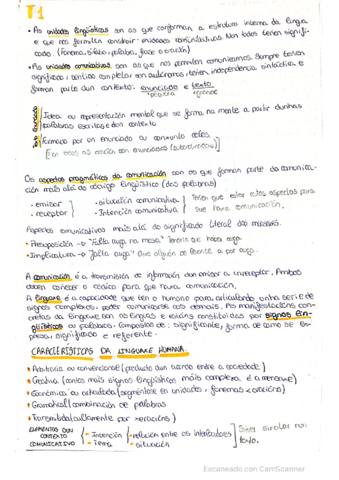 T1
• As unidades lingüísticas son as que conforman a estrutura interna da lingua
e que nos permiten construír unidades comunicativas. Non todas teñen signifi-
cado. (Fonema, sílaba, palabra, frase e oración)
• As unidades comunicativas son as que nos permiten comunicarnos. Sempre teñen
significado, sentido completo, son autónomas, teñen independencia sintáctica e
forman parte dun contexto: enunciado e texto.
pequena grande
Enunciado
Idea ou representación mental que se forma na mente a partir dunhas
palabras escritas e dun contexto
Texto
Formado por un enunciado ou conxunto deles.
Os aspectos pragmáticos da comunicación son os que forman parte da comunica-
ción máis alá do código lingüístico (das palabras)
• emisor • situación comunicativa Teñen que estar estes aspectos para
• receptor • Intención comunicativa que haxa comunicación.
Aspectos comunicativos máis alá do significado literal das mensaxes.
• Presuposición → "Falta auga na mesa"
• Implicatura → "Falta auga" Que alguén se levante a por auga.
A comunicación é a transmisión de información dun emisor a un receptor. Ambos
deben coñecer o código para que haxa comunicación.
A linguaxe é a capacidade que ten o humano para articulando unha serie de
signos complexos, poder comunicarse cos demais. As manifestacións con-
cretas da linguaxe son as linguas e están constituídas por signos lin-
güísticos ou palabras. Compostos de: significante, forma de como se ex-
presa, significado e referente.
CARACTERÍSTICAS DA LINGUAXE HUMANA
• Arbitraria ou convencional (produto dun acordo entre a sociedade)
• Creativa (cantos máis signos lingüísticos máis complexa é a mensaxe)
• Económica ou articulada (segmentase en unidades, fonemas<oracións)
• Gramatical (combinación de palabras
• Transmitida culturalmente por xeracións)
ELEMENTOS DUN
CONTEXTO
COMUNICATIVO
- Intención - relación entre os interlocutores
- Tema - situación
texto.
Escaneado con CamScanner